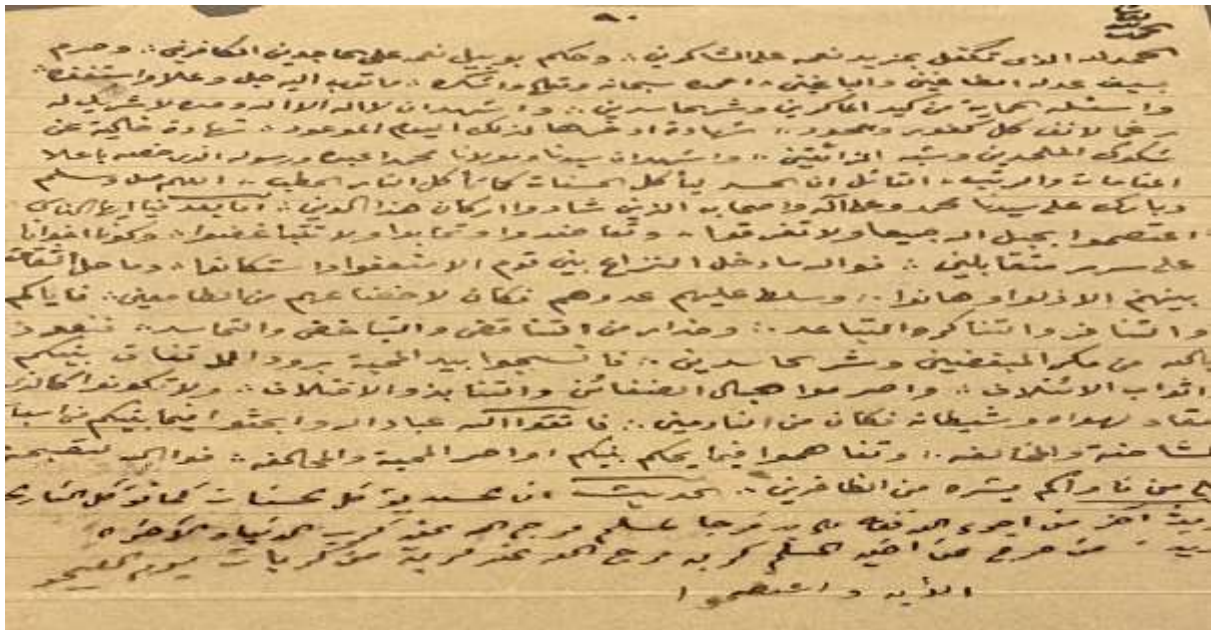 ٨٠
الحمد لله الذي تكفل بمزيد نعمه على الشاكرين .. وحكم بوبيل نقمه على الجاحدين الكافرين .. وصرم
بسيف عدله الطاغين والباغين . احمده سبحانه وتعالى واشكره . واتوب اليه جل وعلا واستغفره
واسئله الحماية من كيد الماكرين وشر الحاسدين .. واشهد ان لا اله الا الله وحده لا شريك له
رغما لانف كل كفور وجحود .. شهادة ادخرها لذلك اليوم الموعود . شهادة خالية عن
شكوك الملحدين وشبه الزائغين .. واشهد ان سيدنا ومولانا محمدا عبده ورسوله الذي خصه باعلا
المقامات والرتب . القائل ان الحسد يأكل الحسنات كما تأكل النار الحطب .. اللهم صل وسلم
وبارك على سيدنا محمد وعلى اله واصحابه الذين شادوا اركان هذا الدين . اما بعد فيا ايها الناس
اعتصموا بحبل الله جميعا ولا تفرقوا . وتعاضدوا وتحابوا ولا تتباغضوا . وكونوا اخوانا
على سرر متقابلين . فوالله ما دخل النزاع بين قوم الا ضعفوا واستكانوا . وما حل الشقاق
بينهم الا ذلوا وهانوا .. وسلط عليهم عدوهم فكان لاخضاعهم من الطامعين . فاياكم
والتنافر والتناكر والتباعد .. وحذار من التناقض والتباغض والتحاسد . فنعوذ
بالله من مكر المبغضين وشر الحاسدين .. فانسجوا بيد المحبة برود الاتفاق بينكم
اثواب الائتلاف . واصرموا حبال الضغائن والتنابذ والاختلاف . ولا تكونوا كالذي
انقاد لهواه وشيطانه فكان من النادمين .. فاتقوا الله عباد الله وابحثوا فيما بينكم من اسباب
المشاحنة والمخالفه .. وتفاهموا فيما يحكم بينكم اواصر المحبة والمحالفه . فوالله لتصبحن
على من ناوأكم بنصره من الظافرين .. الحديث ان الحسد يأكل الحسنات كما تأكل النار
حديث آخر من اخيه المسلم فرج الله عنه كرب الدنيا والآخره
من فرج عن اخيه المسلم كربه فرج الله عنه كربة من كربات يوم القيامة
الآيه واعتصموا